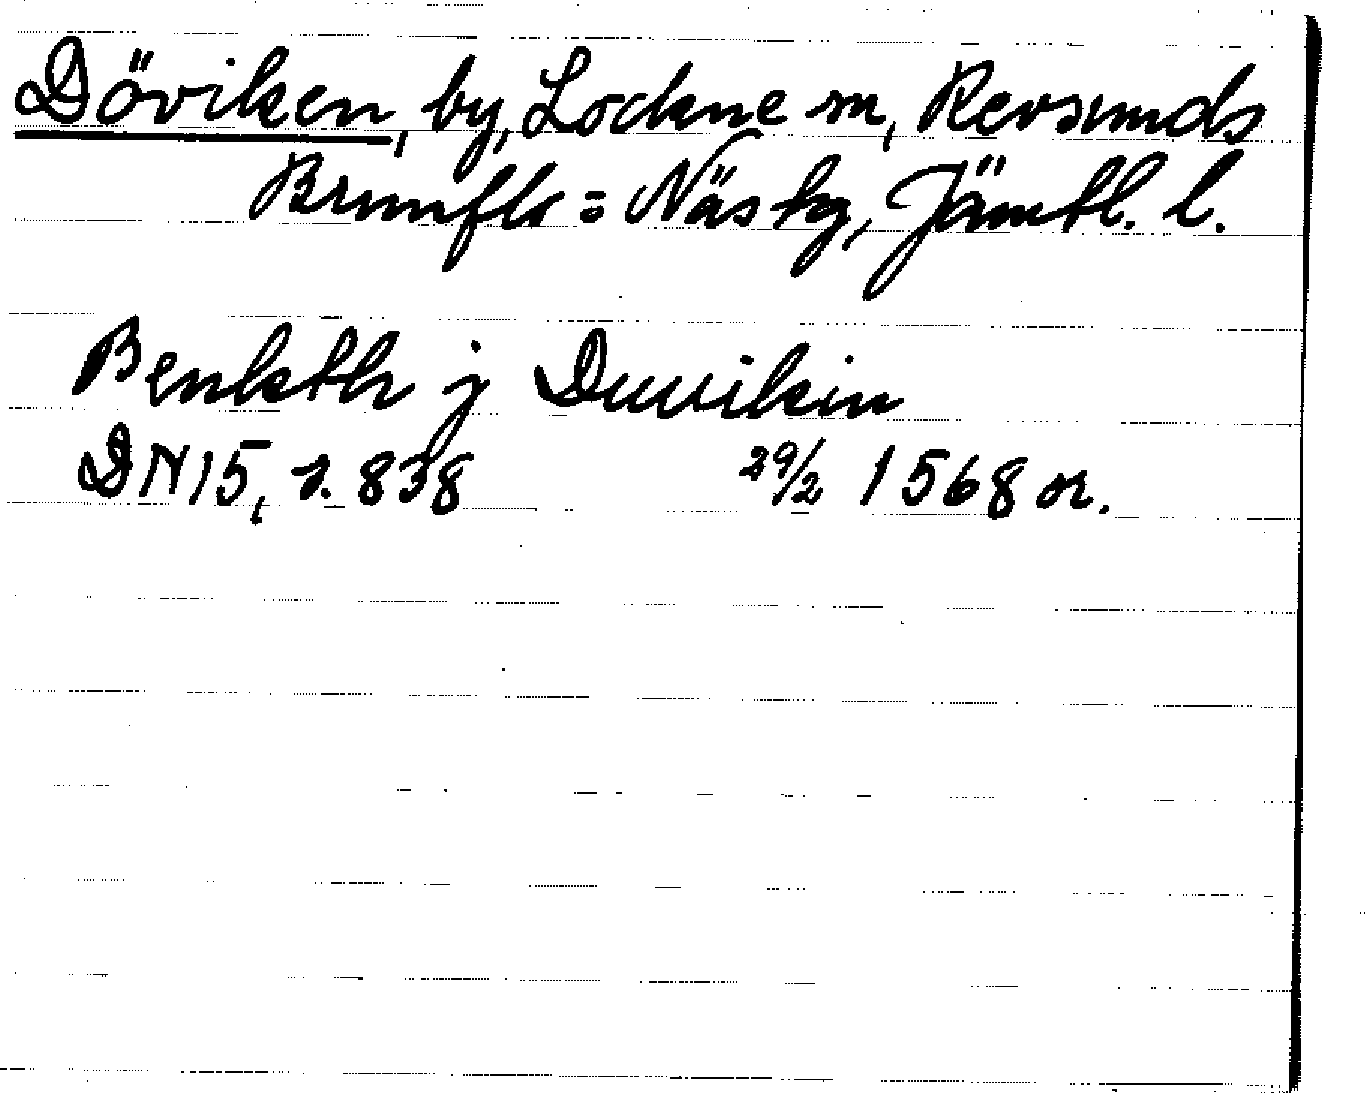 Döviken, by, Lockne sn, Revsunds
Brunflo = Näs tg, Jämtl. l.
Benkth j Duuikin
DN15, s. 838 29/2 1568 or.